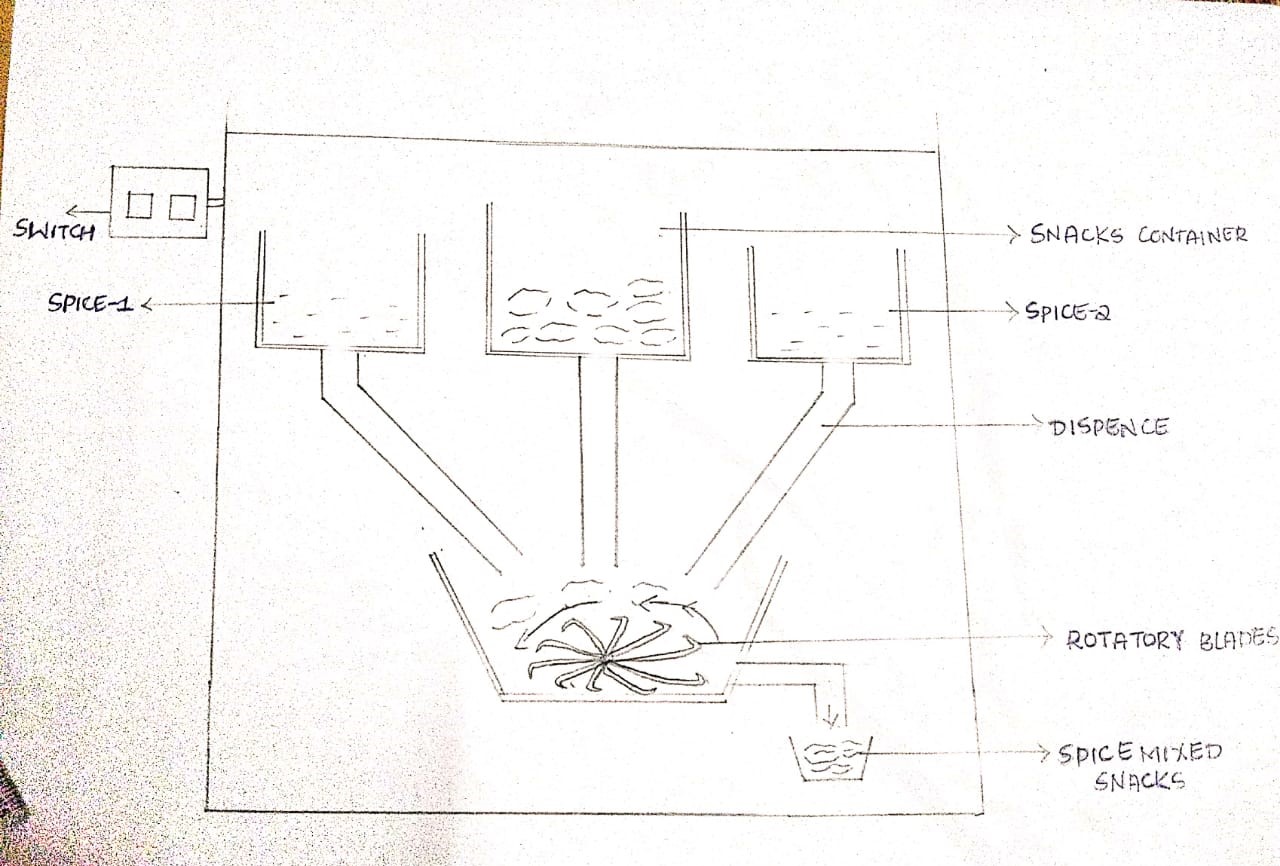 SWITCH
SNACKS CONTAINER
SPICE-1
SPICE-2
DISPENCE
ROTATORY BLADES
SPICE MIXED
SNACKS